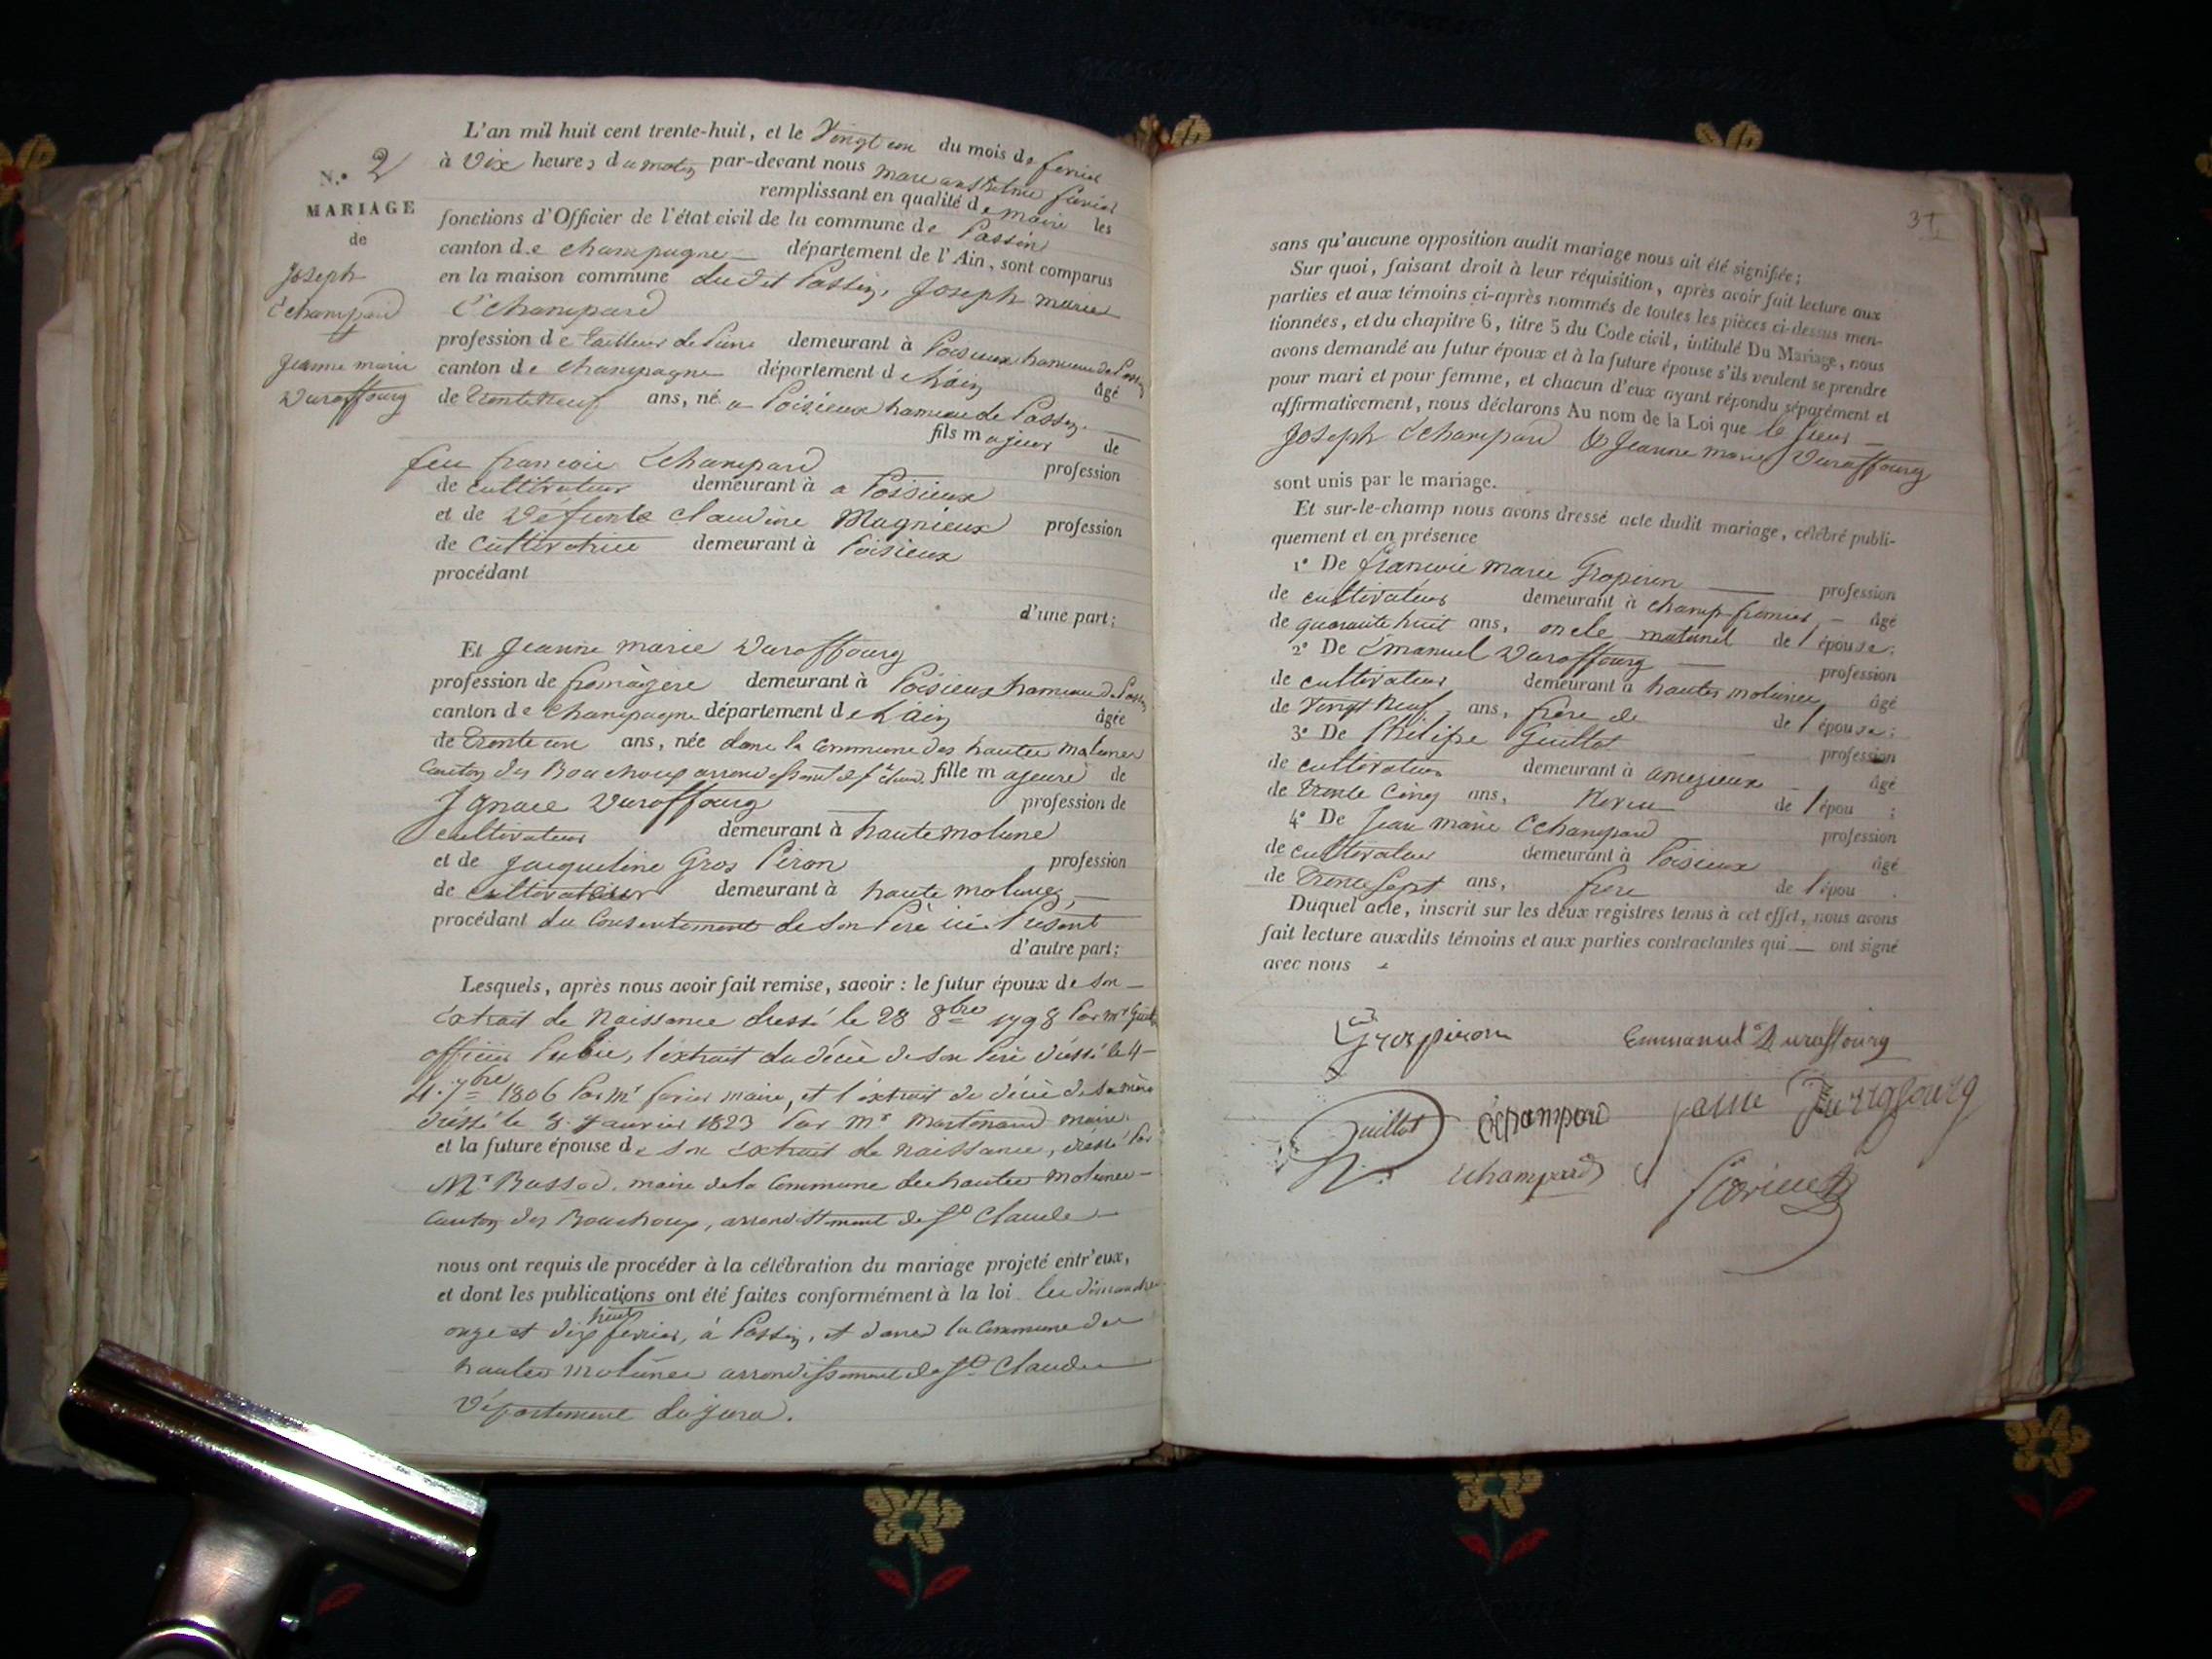 N.o 2
MARIAGE
de
Joseph
Echampard
&
Jeanne marie
Duraffourg
L'an mil huit cent trente-huit, et le Vingt un du mois de fevrier
à Dix heures du matin par-devant nous marc anthelme
remplissant en qualité de maire les
fonctions d'Officier de l'état civil de la commune de Passin
canton de champagne département de l'Ain, sont comparus
en la maison commune dudit Passin, Joseph marie
Echampard
profession de tailleur de Pierre demeurant à Poisieux hameau de Passin
canton de champagne département de L'ain âgé
de trente neuf ans, né a Poisieux hameau de Passin
fils majeur de
feu francois Echampard profession
de cultivateur demeurant à a Poisieux
et de Défunte claudine Magnieux profession
de cultivatrice demeurant à Poisieux
procédant
d'une part;
Et Jeanne marie Duraffourg
profession de fromagère demeurant à Poisieux hameau de Passin
canton de Champagne département de L'ain âgée
de trente un ans, née dans la commune des hautes molunes
canton des Bouchoux arrondissement de st claude fille majeure de
Ignace Duraffourg profession de
cultivateur demeurant à haute molune
et de Jacqueline Gros Piron profession
de cultivateur demeurant à haute molunes
procédant du Consentement de Son Père ici Présent
d'autre part;
Lesquels, après nous avoir fait remise, savoir : le futur époux de son
extrait de Naissance dressé le 28 8bre 1798 Par mr
officier Public, l'extrait du décès de Son Père dressé le 4
4. 7bre 1806 Par mr maire, et l'extrait de décès de Sa mère
dressé le 8 Janvier 1823 Par Mr Martinand maire
et la future épouse de son extrait de naissance, dressé Par
Mr Bassod. maire de la Commune des hautes Molunes
Canton des Bouchoux, arrondissement de St Claude
nous ont requis de procéder à la célébration du mariage projeté entr'eux,
et dont les publications ont été faites conformément à la loi les dimanches
onze et dix huit fevrier, à Passin, et dans la Commune des
hautes molunes arrondissement de St Claude
Département du jura.
31
sans qu'aucune opposition audit mariage nous ait été signifiée;
Sur quoi, faisant droit à leur réquisition, après avoir fait lecture aux
parties et aux témoins ci-après nommés de toutes les pièces ci-dessus men-
tionnées, et du chapitre 6, titre 5 du Code civil, intitulé Du Mariage, nous
avons demandé au futur époux et à la future épouse s'ils veulent se prendre
pour mari et pour femme, et chacun d'eux ayant répondu séparément et
affirmativement, nous déclarons Au nom de la Loi que le sieur
Joseph Echampard & Jeanne Marie Duraffourg
sont unis par le mariage.
Et sur-le-champ nous avons dressé acte dudit mariage, célébré publi-
quement et en présence
1° De francois marie Gropiron profession
de cultivateur demeurant à champ-fromier âgé
de quarante huit ans, oncle maternel de l'épouse;
2° De Emanuel Duraffourg profession
de cultivateur demeurant à hautes molunes âgé
de Vingt neuf ans, frère de de l'épouse;
3° De Philipe Guillot profession
de cultivateur demeurant à amezieux âgé
de trente cinq ans, Neveu de l'épou ;
4° De Jean marie Echampard profession
de cultivateur demeurant à Poisieux âgé
de trente sept ans, frère de l'épou .
Duquel acte, inscrit sur les deux registres tenus à cet effet, nous avons
fait lecture auxdits témoins et aux parties contractantes qui ont signé
avec nous
Grospiron Emmanuel Duraffourg
Guillot Echampard
Echampard